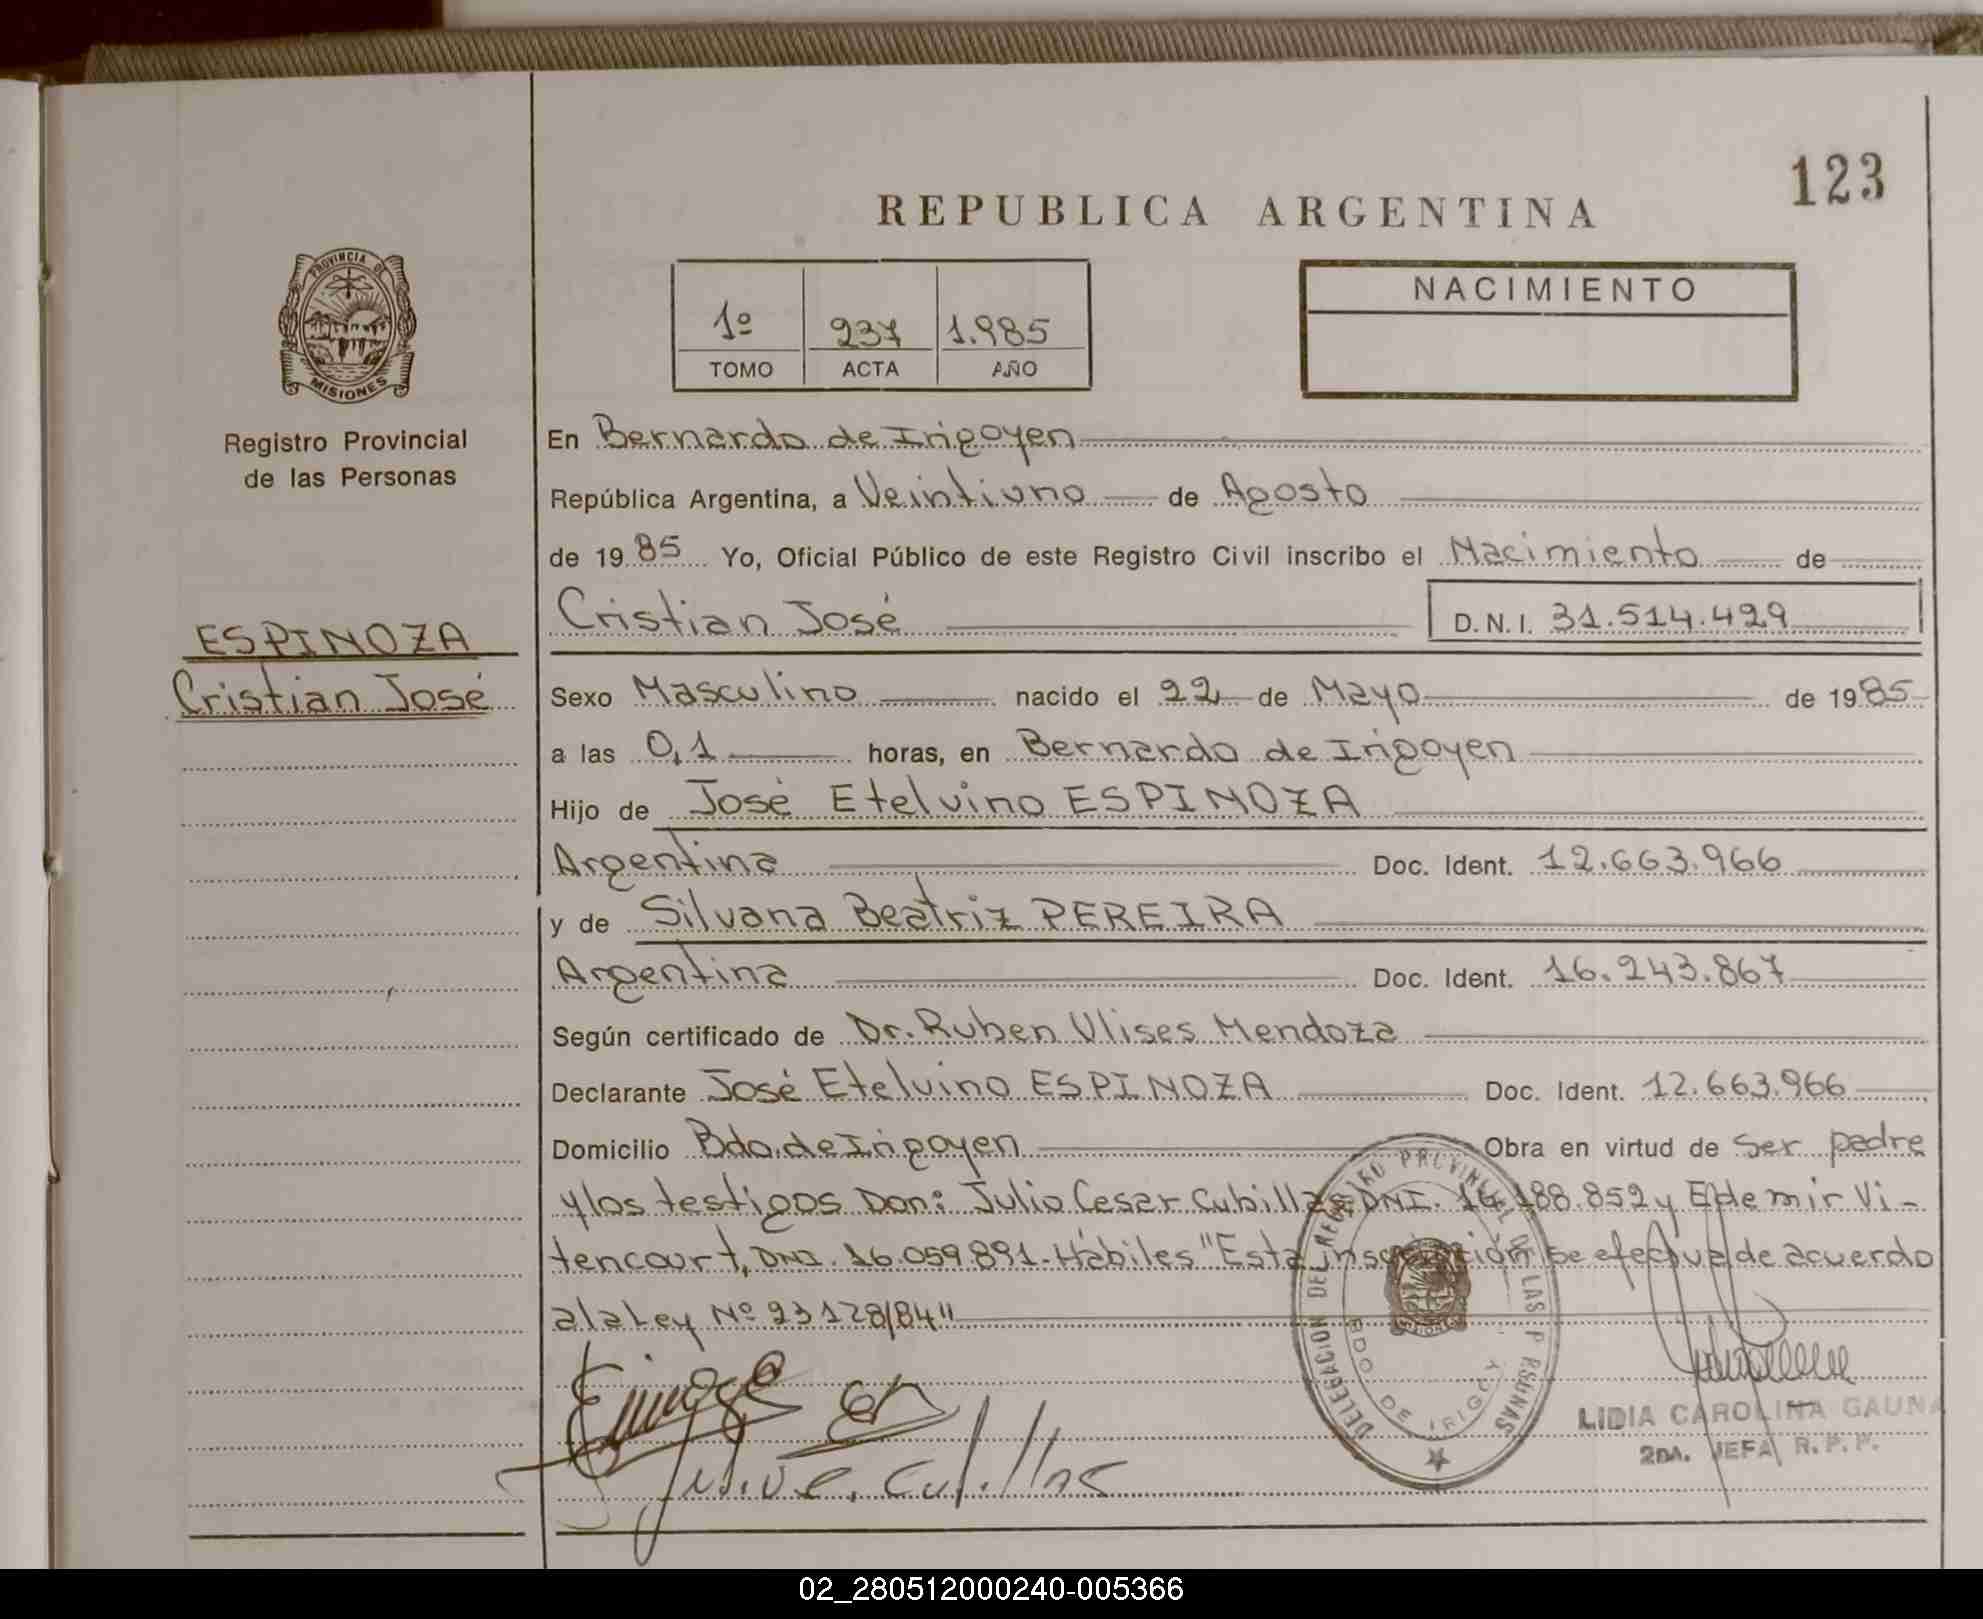 123
REPUBLICA ARGENTINA
PROVINCIA DE
MISIONES
Registro Provincial
de las Personas
1º 237 1.985
TOMO ACTA AÑO
NACIMIENTO
En Bernardo de Irigoyen
República Argentina, a Veintiuno de Agosto
de 19 85 Yo, Oficial Público de este Registro Civil inscribo el Nacimiento de
Cristian José D.N.I. 31.514.429
ESPINOZA
Cristian José
Sexo Masculino nacido el 22 de Mayo de 19 85
a las 0,1 horas, en Bernardo de Irigoyen
Hijo de José Etelvino ESPINOZA
Argentina Doc. Ident. 12.663.966
y de Silvana Beatriz PEREIRA
Argentina Doc. Ident. 16.243.867
Según certificado de Dr. Ruben Ulises Mendoza
Declarante José Etelvino ESPINOZA Doc. Ident. 12.663.966
Domicilio Bdo. de Irigoyen Obra en virtud de ser padre
y los testigos Don: Julio Cesar Cubillas DNI. 188.852 y Eldemir Vi-
tencourt, DNI. 16.059.891.- Hábiles "Esta inscripción se efectua de acuerdo
a la Ley Nº 23128/84"
DELEGACION DEL REGISTRO PROVINCIAL DE LAS P RSONAS
BDO DE IRIGOY
MISIONES
LIDIA CAROLINA GAUNA
2DA. JEFA R.P.P.
Cubillas
02_280512000240-005366